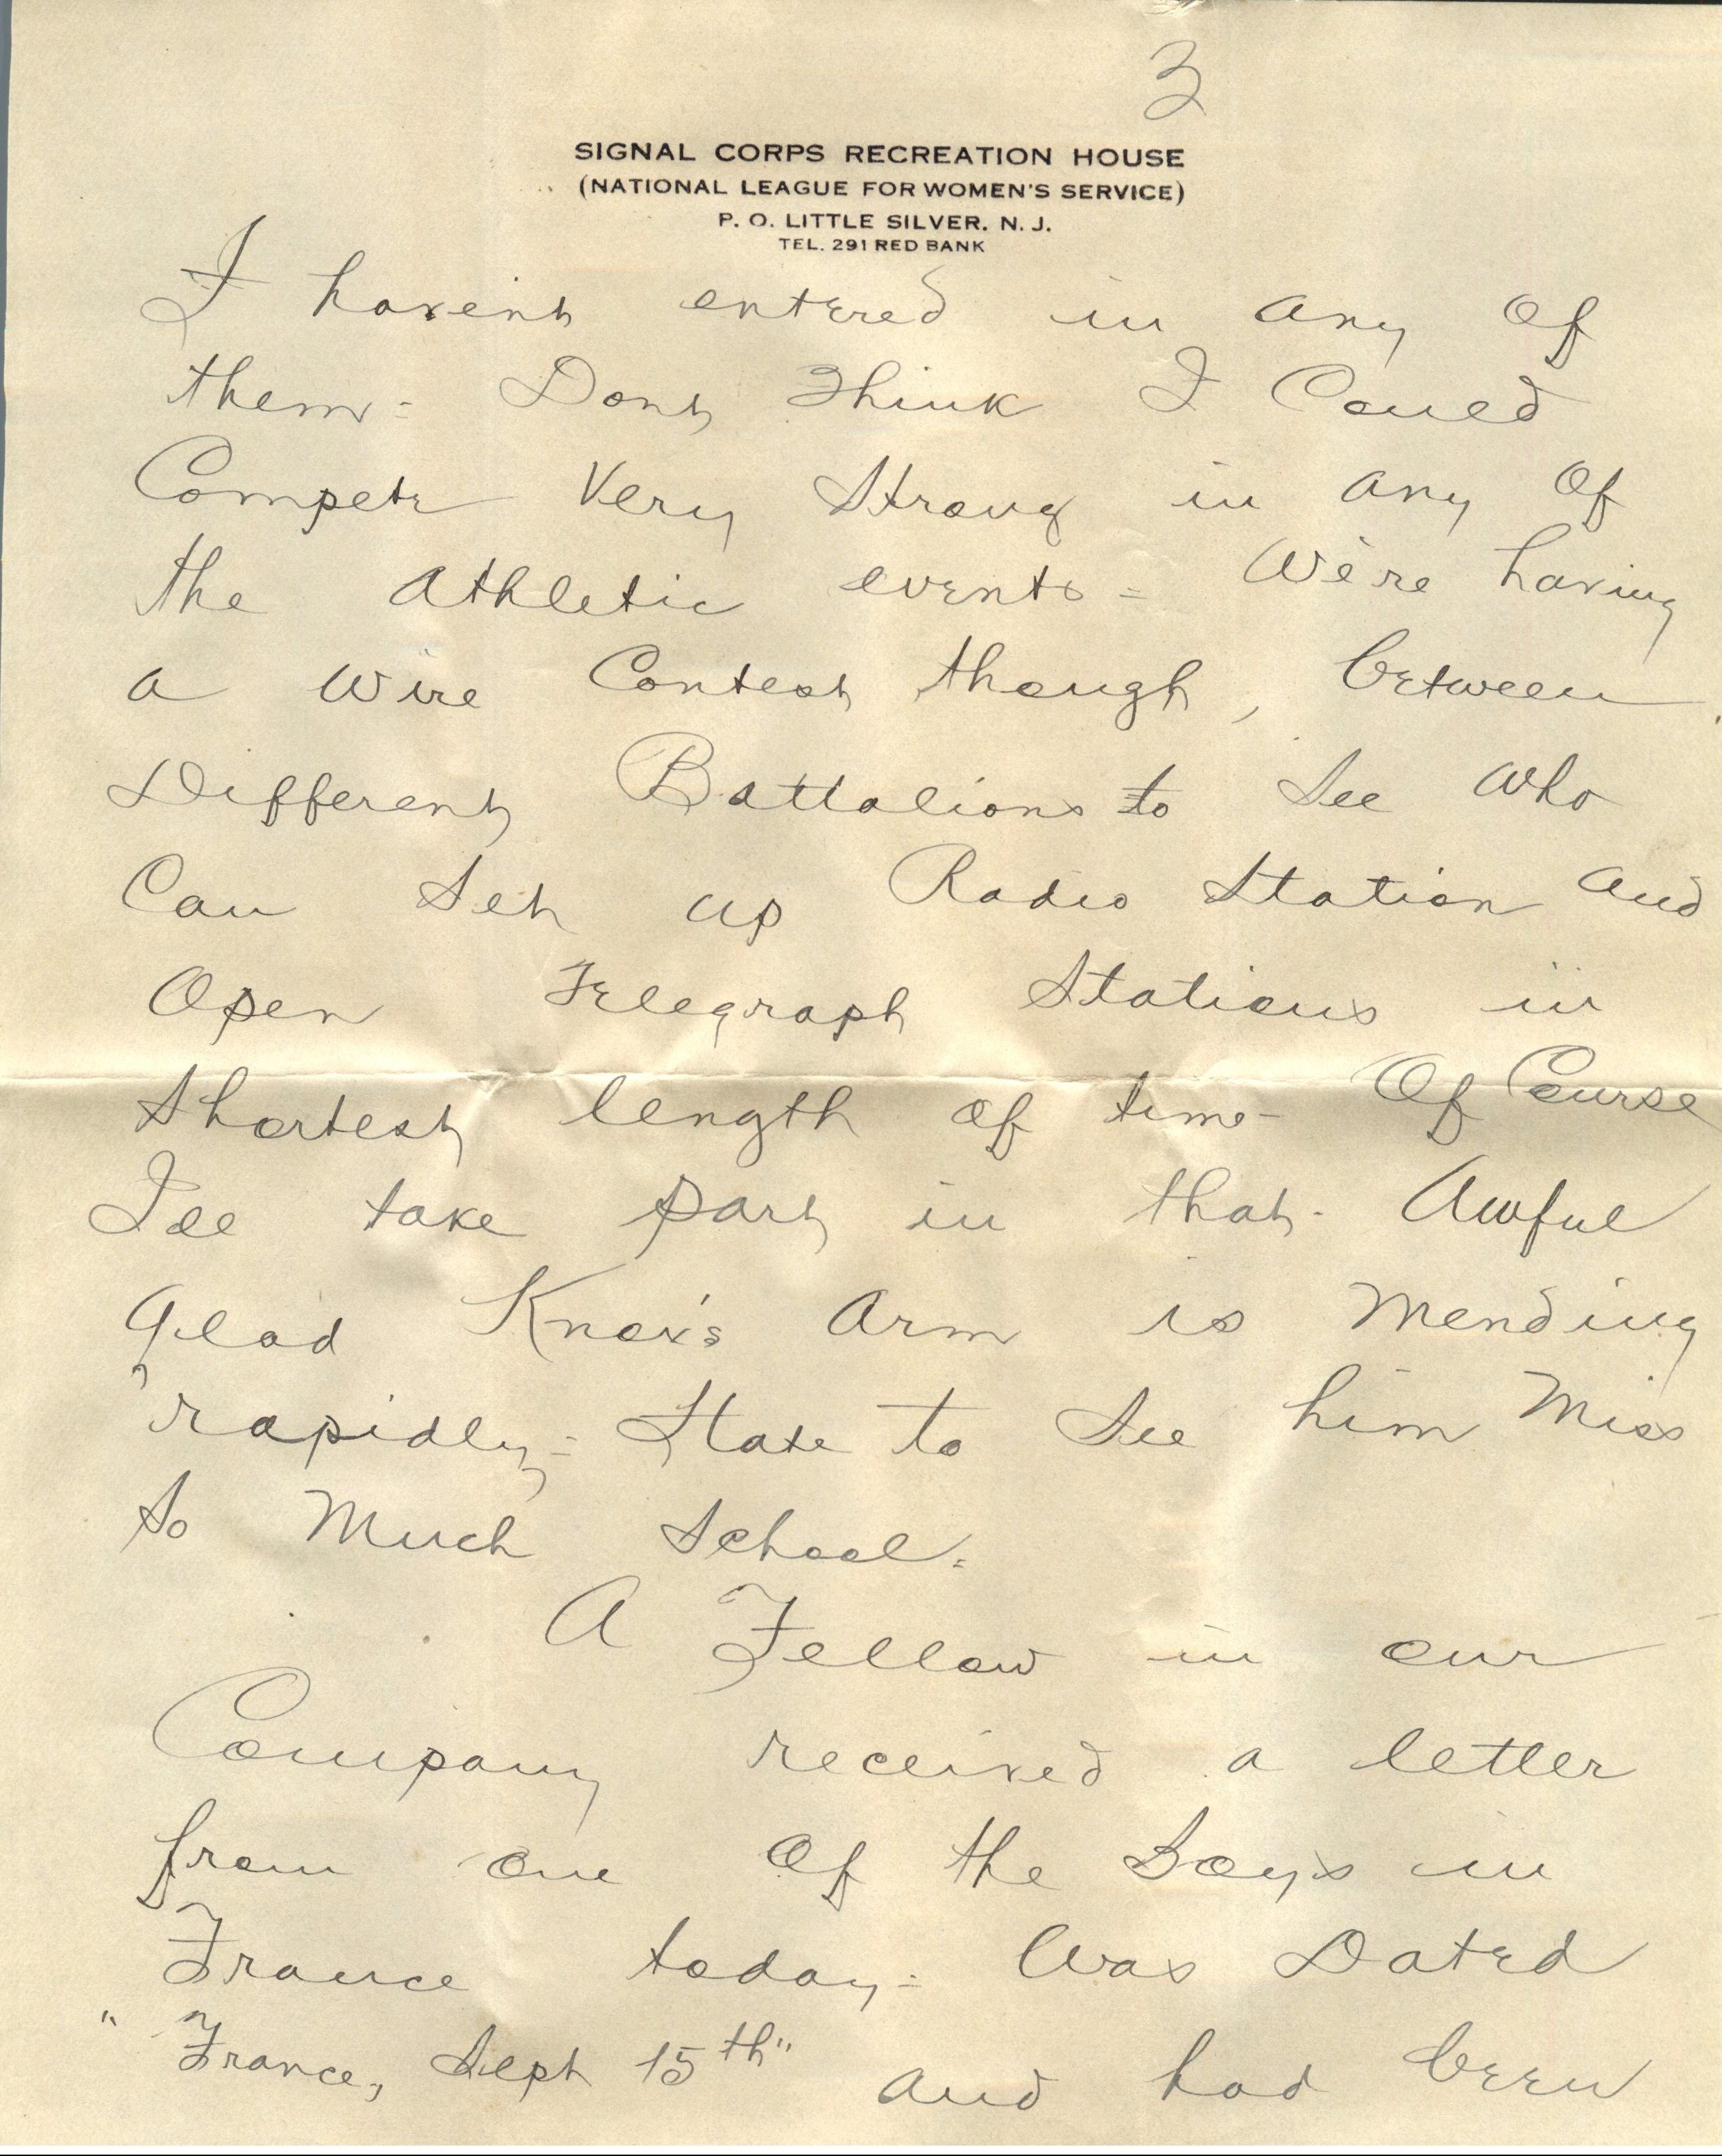 3
SIGNAL CORPS RECREATION HOUSE
(NATIONAL LEAGUE FOR WOMEN'S SERVICE)
P. O. LITTLE SILVER. N. J.
TEL. 291 RED BANK
I havent entered in any of
them- Dont think I Could
Compete Very Strong in any of
the athletic events= We're having
a wire Contest though, between
Different Battalions to See who
Can Set up Radio Station and
Open Telegraph Stations in
Shortest length of time- Of Course
I'll take part in that- Awful
glad Knox's arm is mending
rapidly= Hate to See him Miss
So Much School.
A Fellow in our
Company received a letter
from one of the Boys in
France today= Was Dated
"France, Sept 15th" and had been